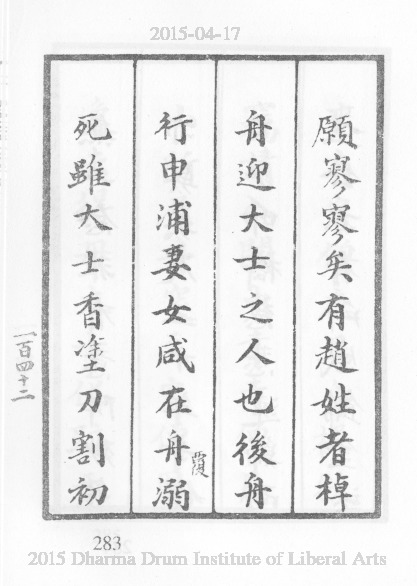 2015-04-17
願寥寥矣有趙姓者棹
舟迎大士之人也後舟
行申浦妻女咸在舟溺
覆
死雖大士香塗刀割初
一百四十二
283
2015 Dharma Drum Institute of Liberal Arts